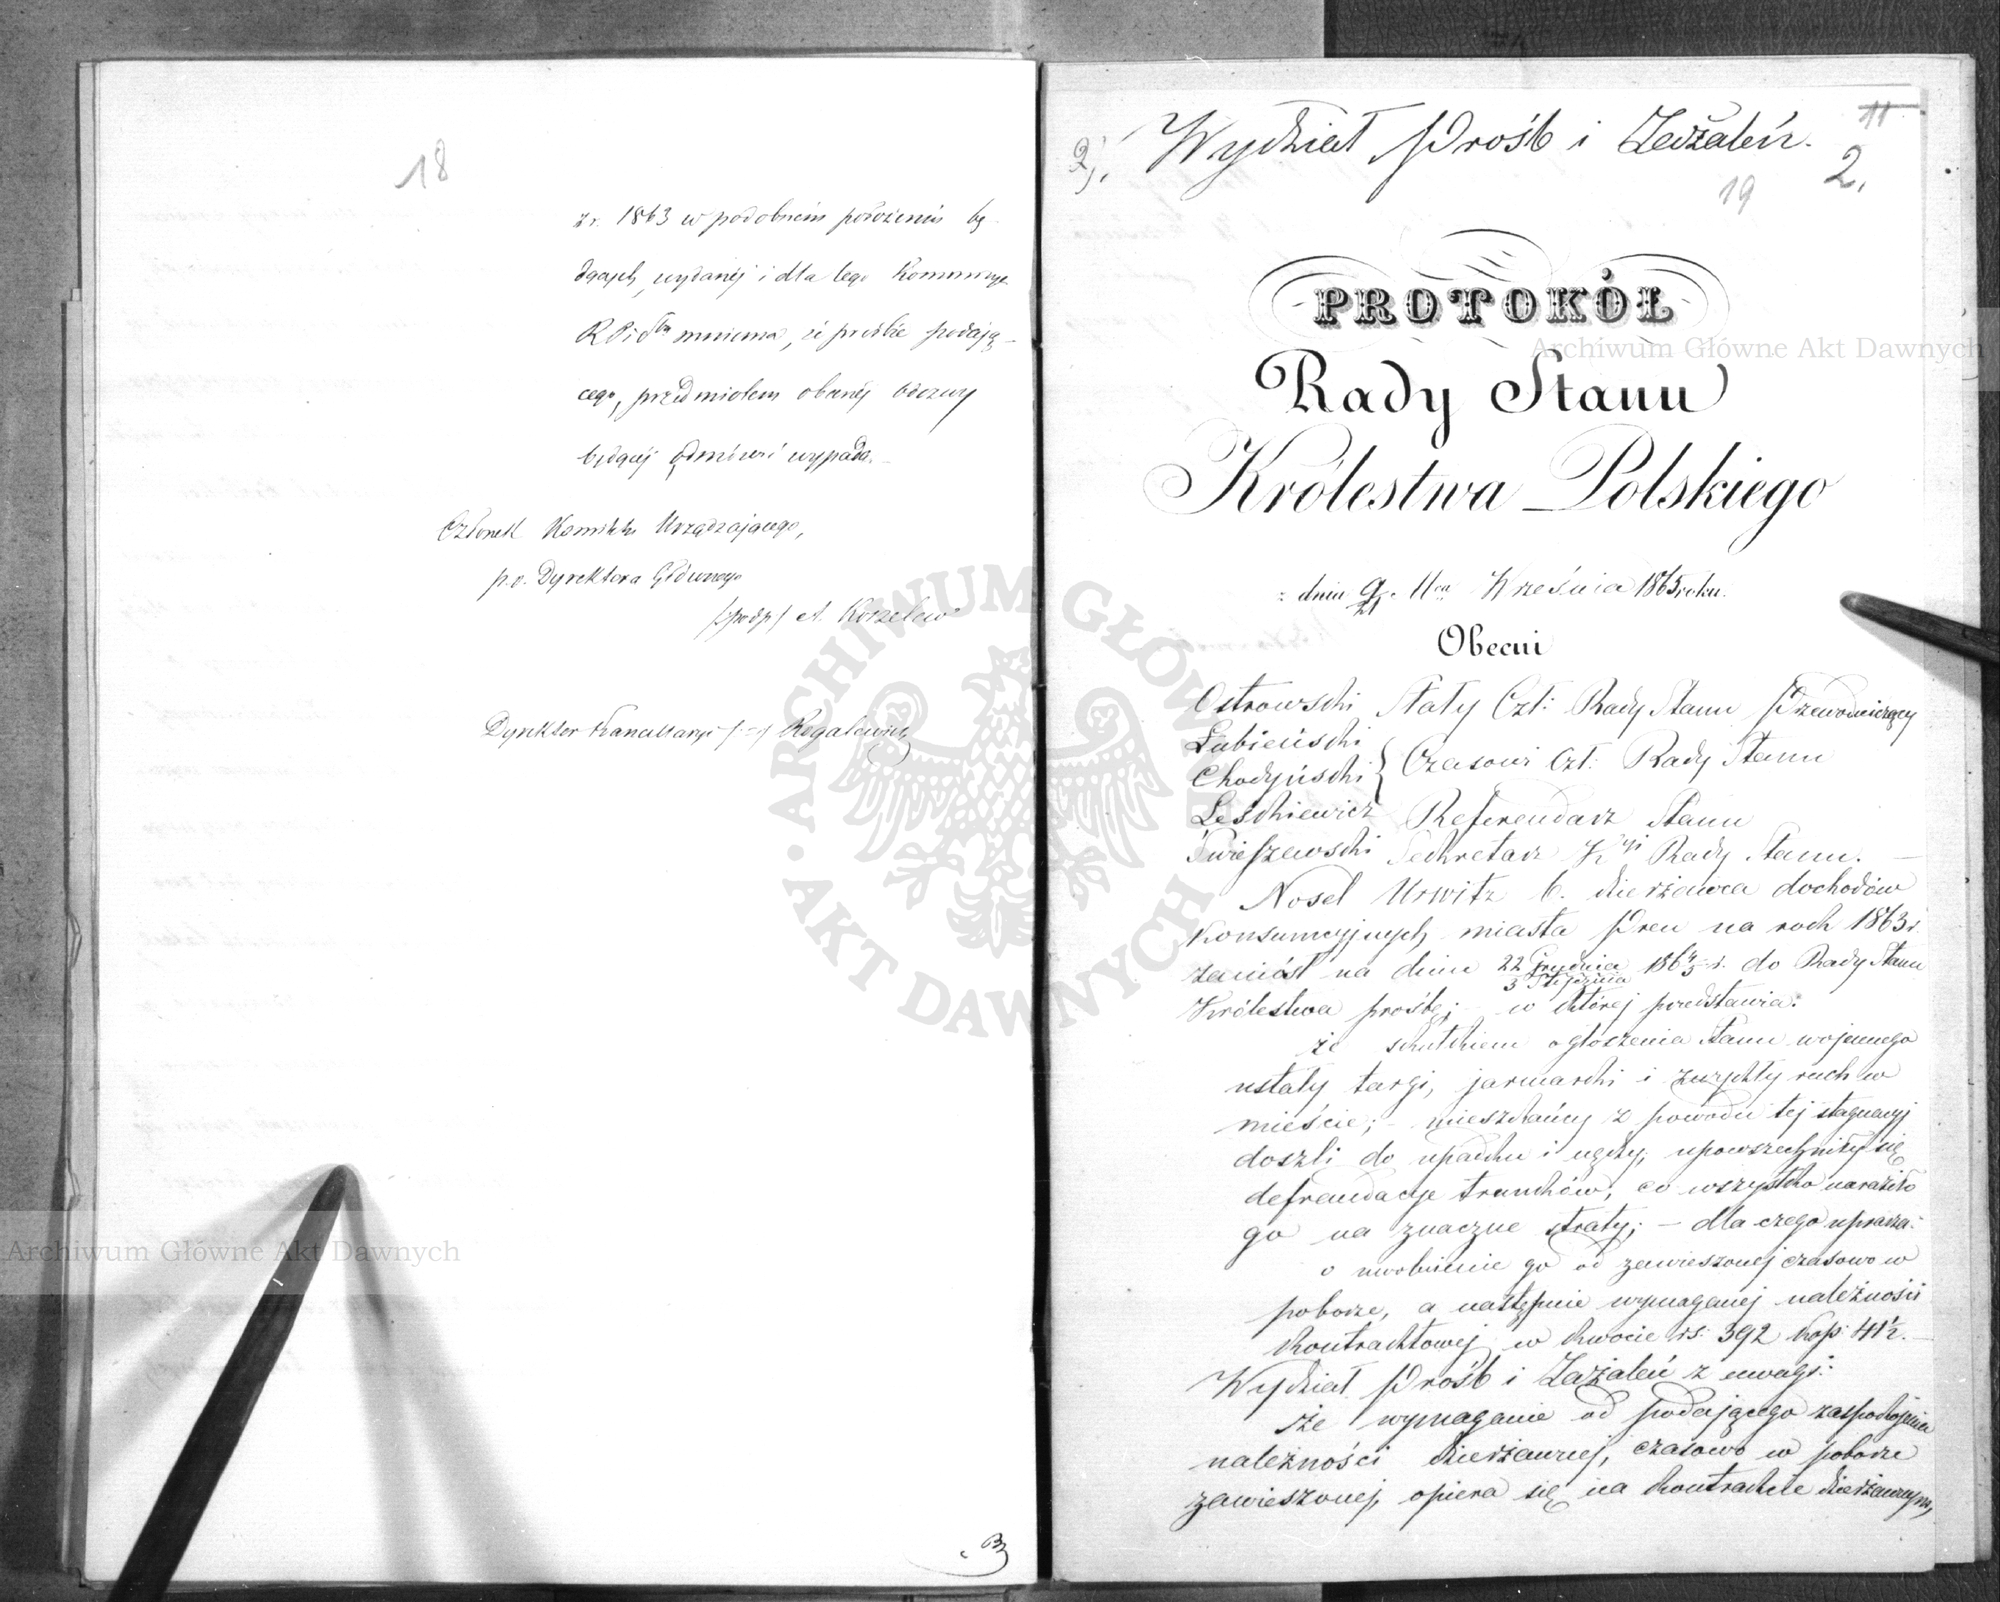 18
z r. 1863 w podobném położeniu bę-
dących, wydanéj i dla tego Kommissya
mniema, iż prośbie podają-
cego, przedmiotem obecnéj odezwy
będącéj odmówić wypada.
Członek Komitetu Urządzającego,
p.o. Dyrektora Głównego
(podp) A. Korzelew
Dyrektor Kancellaryi Rogalewicz
11
2). Wydział Próśb i Zażaleń.
2.
19
PROTOKÓŁ
Rady Stanu
Królestwa Polskiego
z dnia 9/21 Września 1865 roku.
Obecni
Ostrowski Stały Czł: Rady Stanu Przewodniczący
Łubieński
Chodyński } Czasowi Czł: Rady Stanu
Leskiewicz Referendarz Stanu
Świeszewski Sekretarz Kryi Rady Stanu.
Nosel Urwitz b. dzierżawca dochodów
Konsumcyjnych miasta Pren na rok 1863 r.
zaniósł na dniu 22 Grudnia / 3 Stycznia 1864/5 r. do Rady Stanu
Królestwa prośbę; w której przedstawia:
że skutkiem ogłoszenia Stanu wojennego
ustały targi, jarmarki i zwykły ruch w
mieście; - mieszkańcy z powodu tej stagnacyj
doszli do upadku i nędzy, upowszechniły się
defraudacje trunków, co wszystko naraziło
go na znaczne straty; - dla czego uprasza:
o uwolnienie go od zawieszonej czasowo w
poborze, a następnie wymaganej należności
kontraktowej w kwocie rs: 392 kop: 41½.
Wydział Próśb i Zażaleń z uwagi:
że wymaganie od podającego zaspokojenia
należności dzierżawnej, czasowo w poborze
zawieszonej, opiera się na kontrakcie dzierżawnym,
Archiwum Główne Akt Dawnych
Archiwum Główne Akt Dawnych
ARCHIWUM GŁÓWNE AKT DAWNYCH